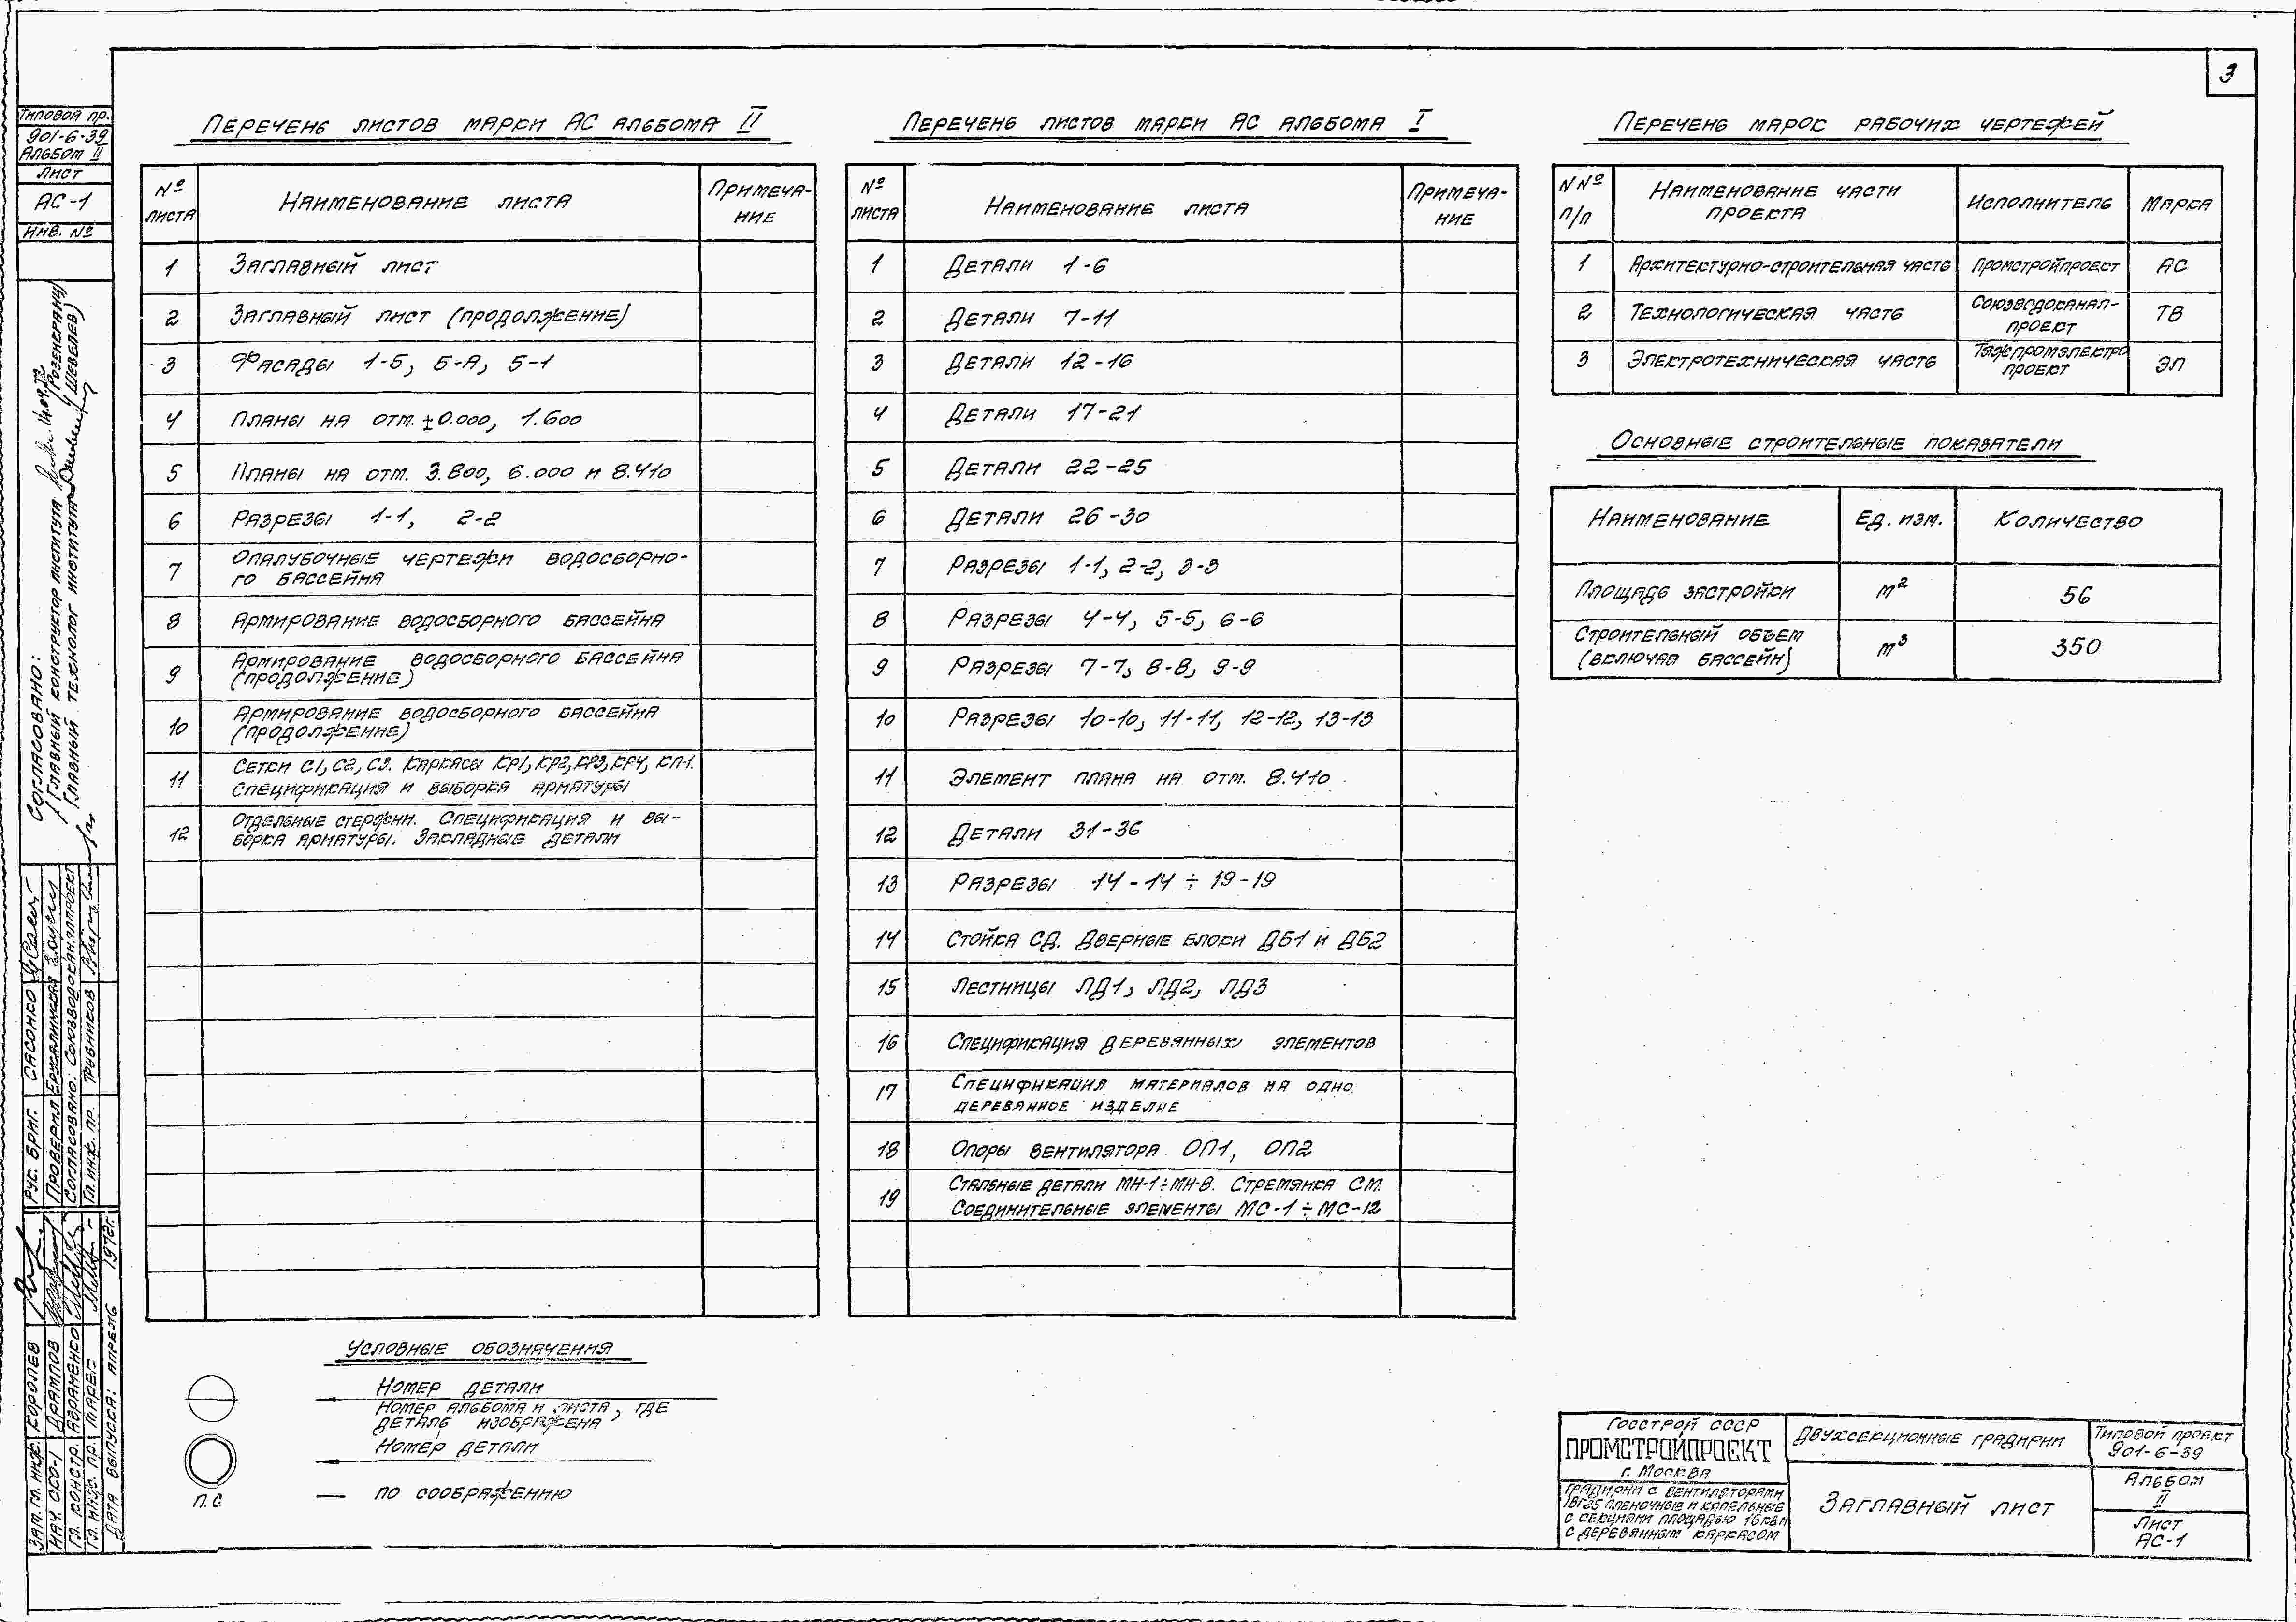 3
Типовой пр.
901-6-39
Альбом II
Лист
АС-1
Инв. №
Перечень листов марки АС альбома II
№ листа
Наименование листа
Примеча-
ние
1 Заглавный лист
2 Заглавный лист (продолжение)
3 Фасады 1-5, Б-А, 5-1
4 Планы на отм. ±0.000, 1.600
5 Планы на отм. 3.800, 6.000 и 8.410
6 Разрезы 1-1, 2-2
7 Опалубочные чертежи водосборно-
го бассейна
8 Армирование водосборного бассейна
9 Армирование водосборного бассейна
(продолжение)
10 Армирование водосборного бассейна
(продолжение)
11 Сетки С1, С2, С3. Каркасы КР1, КР2, КР3, КР4, КП-1.
Спецификация и выборка арматуры
12 Отдельные стержни. Спецификация и вы-
борка арматуры. Закладные детали
Перечень листов марки АС альбома I
№ листа
Наименование листа
Примеча-
ние
1 Детали 1-6
2 Детали 7-11
3 Детали 12-16
4 Детали 17-21
5 Детали 22-25
6 Детали 26-30
7 Разрезы 1-1, 2-2, 3-3
8 Разрезы 4-4, 5-5, 6-6
9 Разрезы 7-7, 8-8, 9-9
10 Разрезы 10-10, 11-11, 12-12, 13-13
11 Элемент плана на отм. 8.410
12 Детали 31-36
13 Разрезы 14-14 ÷ 19-19
14 Стойка СД. Дверные блоки ДБ1 и ДБ2
15 Лестницы ЛД1, ЛД2, ЛД3
16 Спецификация деревянных элементов
17 Спецификация материалов на одно
деревянное изделие
18 Опоры вентилятора ОП1, ОП2
19 Стальные детали МН-1÷МН-8. Стремянка СМ.
Соединительные элементы МС-1 ÷ МС-12
Перечень марок рабочих чертежей
N№ п/п
Наименование части
проекта
Исполнитель
Марка
1 Архитектурно-строительная часть Промстройпроект АС
2 Технологическая часть Союзводоканал-
проект ТВ
3 Электротехническая часть Тяжпромэлектро
проект ЭЛ
Основные строительные показатели
Наименование Ед. изм. Количество
Площадь застройки м² 56
Строительный объем
(включая бассейн) м³ 350
Условные обозначения
Номер детали
Номер альбома и листа, где
деталь изображена
Номер детали
П.С. — по соображению
Согласовано:
Главный конструктор института (Розенкранц)
Главный технолог института (Шевелев)
Рук. бриг. Сасонко
Проверил Ерусалимская
Согласовано: Союзводоканалпроект
Гл. инж. пр. Трубников
Зам. гл. инж. Королев
Нач. ОСО-1
Гл. констр. Авраменко
Гл. инж. пр.
Дата выпуска: апрель 1972г.
Госстрой СССР
ПРОМСТРОЙПРОЕКТ
г. Москва
Градирни с вентиляторами
1ВГ25 пленочные и капельные
с секциями площадью 16кв.м
с деревянным каркасом
Двухсекционные градирни
Заглавный лист
Типовой проект
901-6-39
Альбом
II
Лист
АС-1